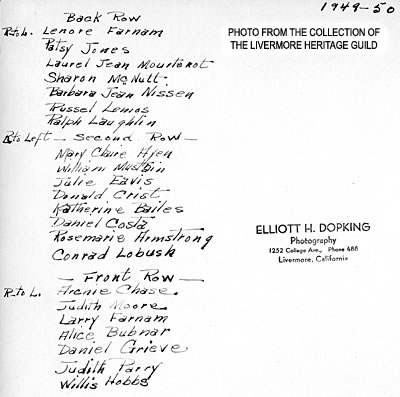 1949-50
Back Row
R to L. Lenore Farnam
Patsy Jones
Laurel Jean Mourtonot
Sharon McNutt
Barbara Jean Nissen
Russel Lemos
Ralph Laughlin
R to Left — Second Row —
Mary Claire Hyen
William
Julie Eavis
Donald Crist
Katherine Bailes
Daniel Costa
Rosemarie Armstrong
Conrad Lobusk
— Front Row —
R to L. Archie Chase
Judith Moore
Larry Farnam
Alice Bubnar
Daniel Grieve
Judith Parry
Willis Hobbs
PHOTO FROM THE COLLECTION OF
THE LIVERMORE HERITAGE GUILD
ELLIOTT H. DOPKING
Photography
1252 College Ave., Phone 488
Livermore, California